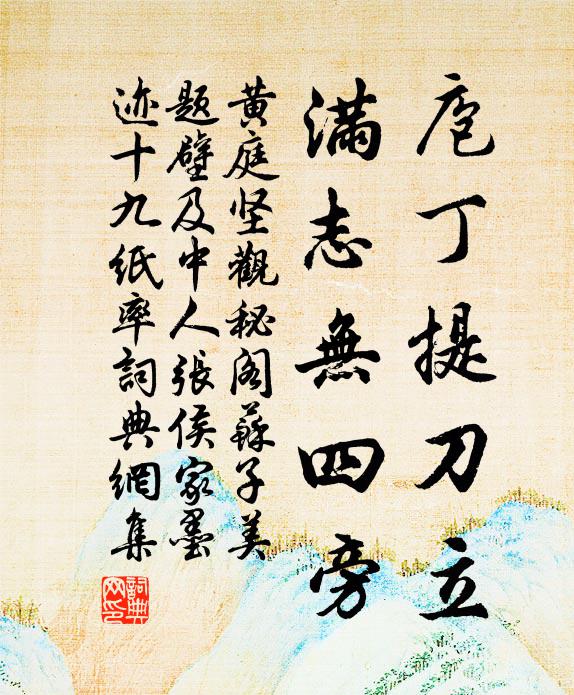 庖丁提刀立
滿志無四旁
黄庭坚觀秘阁蘇子美
题壁及中人張侯家墨
迹十九紙率詞典網集
詞典网印